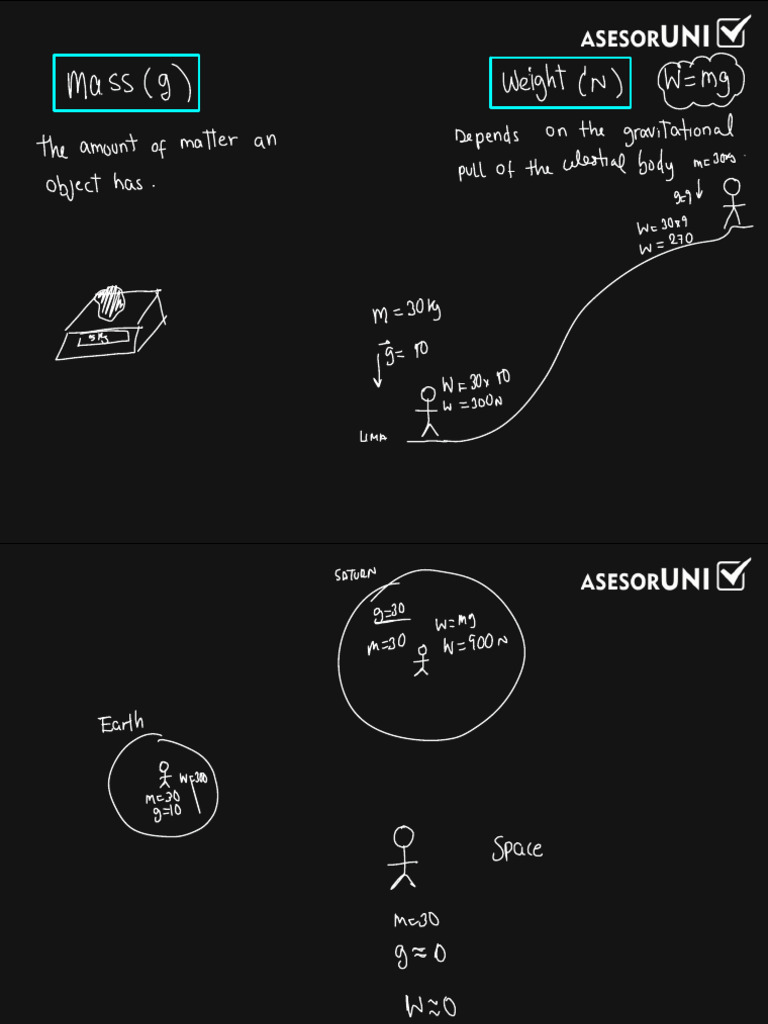 ASESORUNI
Mass (g)
Weight (N)
W=mg
The amount of matter an
object has.
Depends on the gravitational
pull of the celestial body
g=9
W=30x9
W=270
5kg
m=30kg
g=10
W=30x10
W=300N
LIMA
ASESORUNI
SATURN
g=30
m=30
W=mg
W=900N
Earth
W=300
m=30
g=10
Space
m=30
g≈0
W≈0